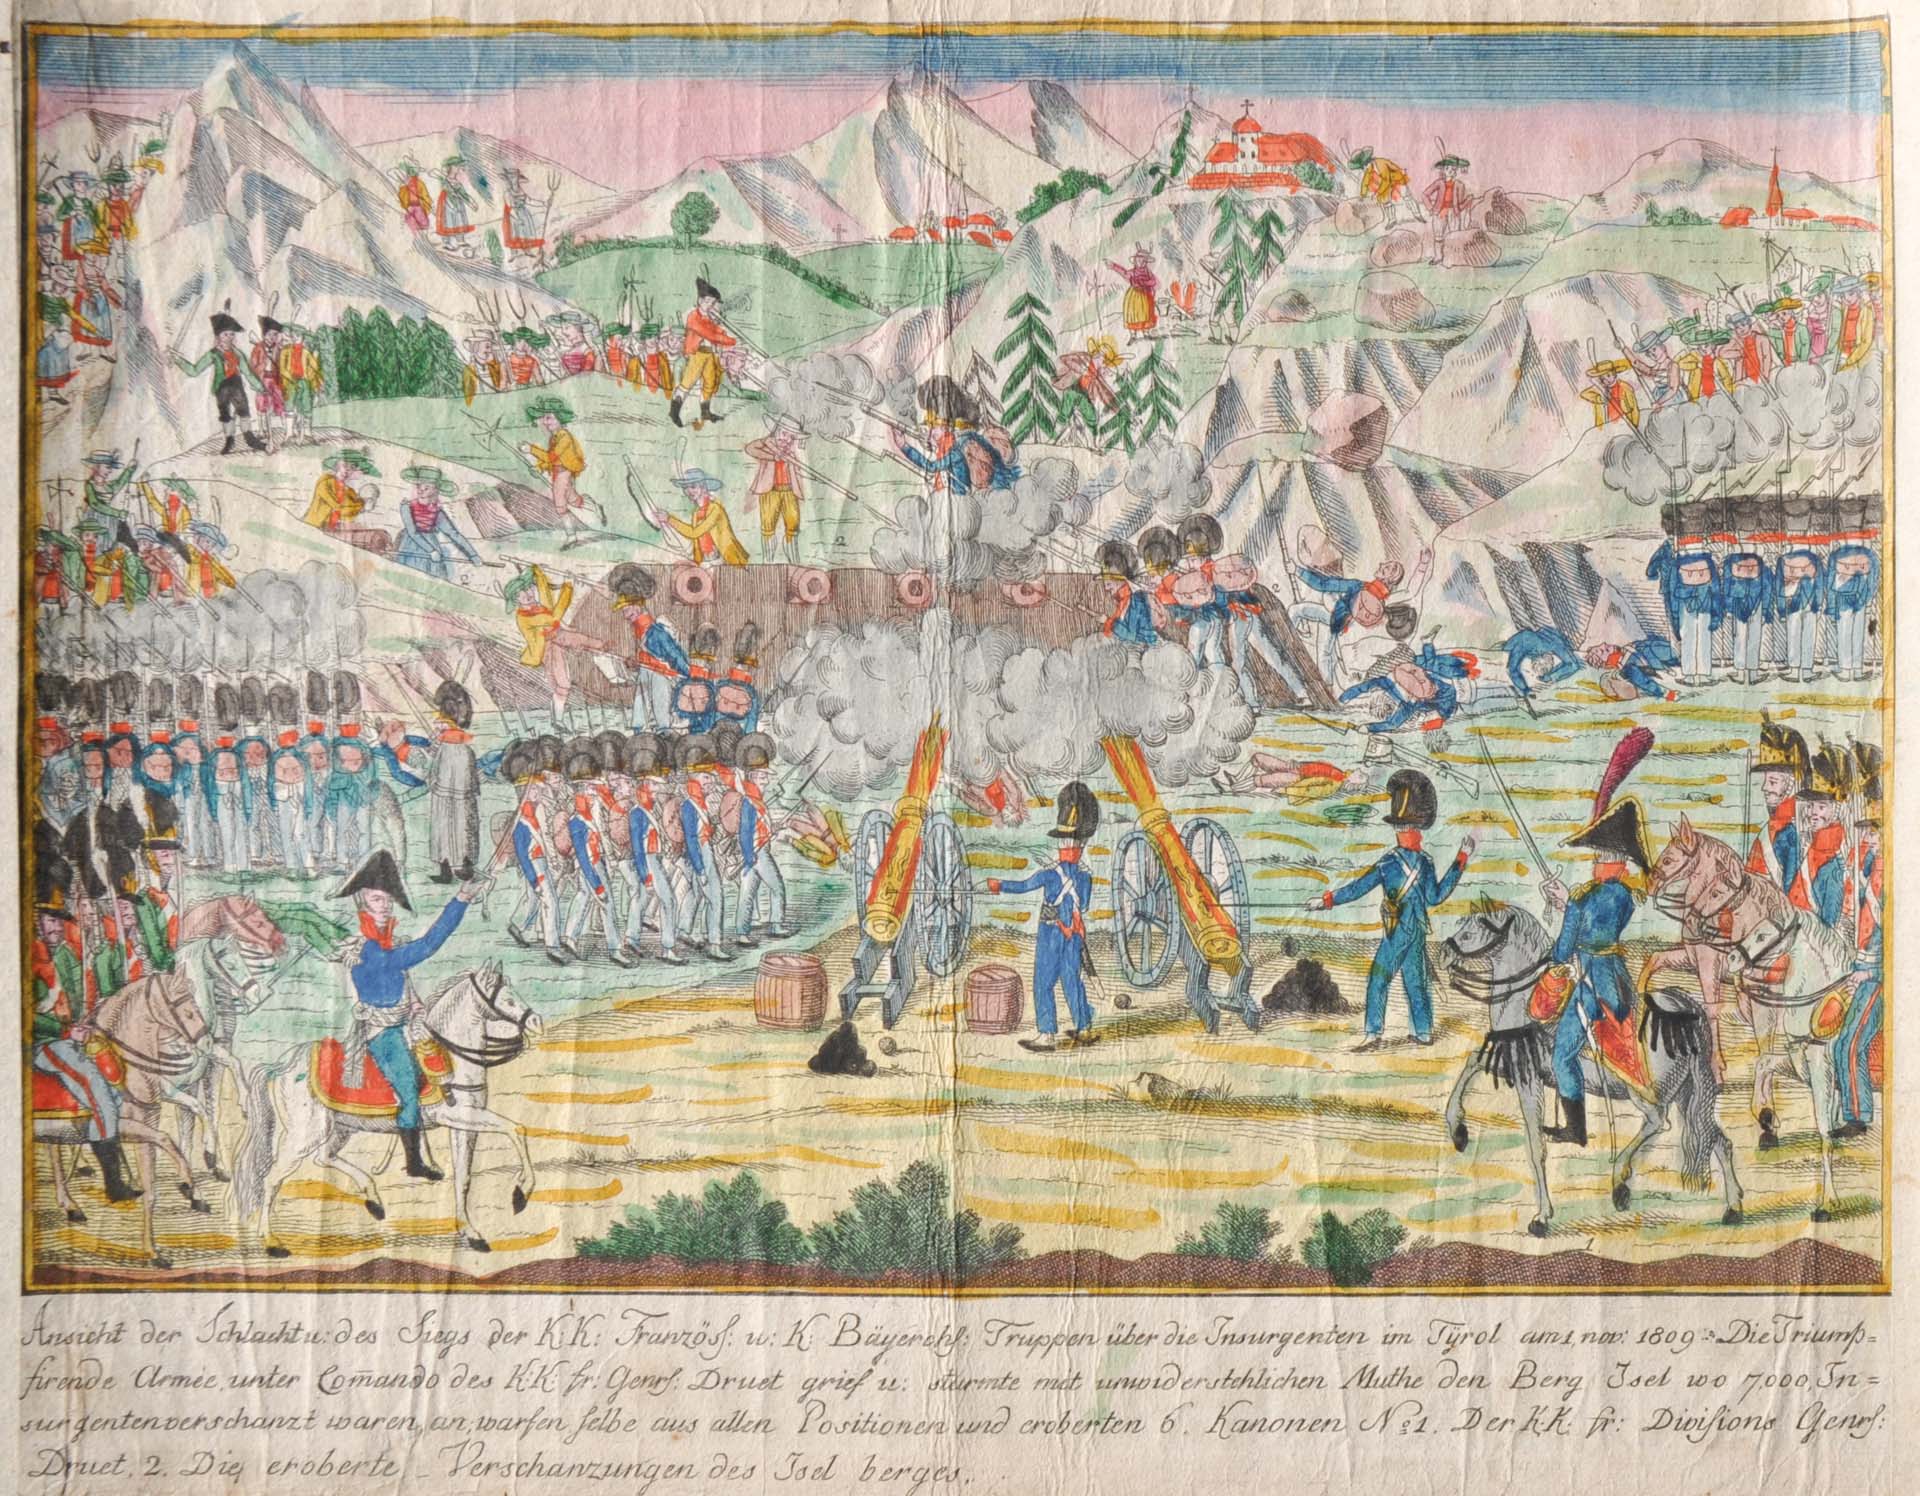 Ansicht der Schlacht u: des Siegs der K: K: Französ: u: K: Bäyersch: Truppen über die Insurgenten im Tÿrol am 1, nov: 1809 Die Triump=
firende Armée, unter Com̄ando des K: K: fr: Genrs: Druet grief u: stürmte mit unwiderstehlichen Muthe den Berg Isel wo 7,000, In=
surgenten verschanzt waren, an, warfen selbe aus allen Positionen und eroberten 6. Kanonen No 1. Der K: K: fr: Divisions Genrs:
Druet, 2. Die eroberte Verschanzungen des Isel berges.
1
2
2